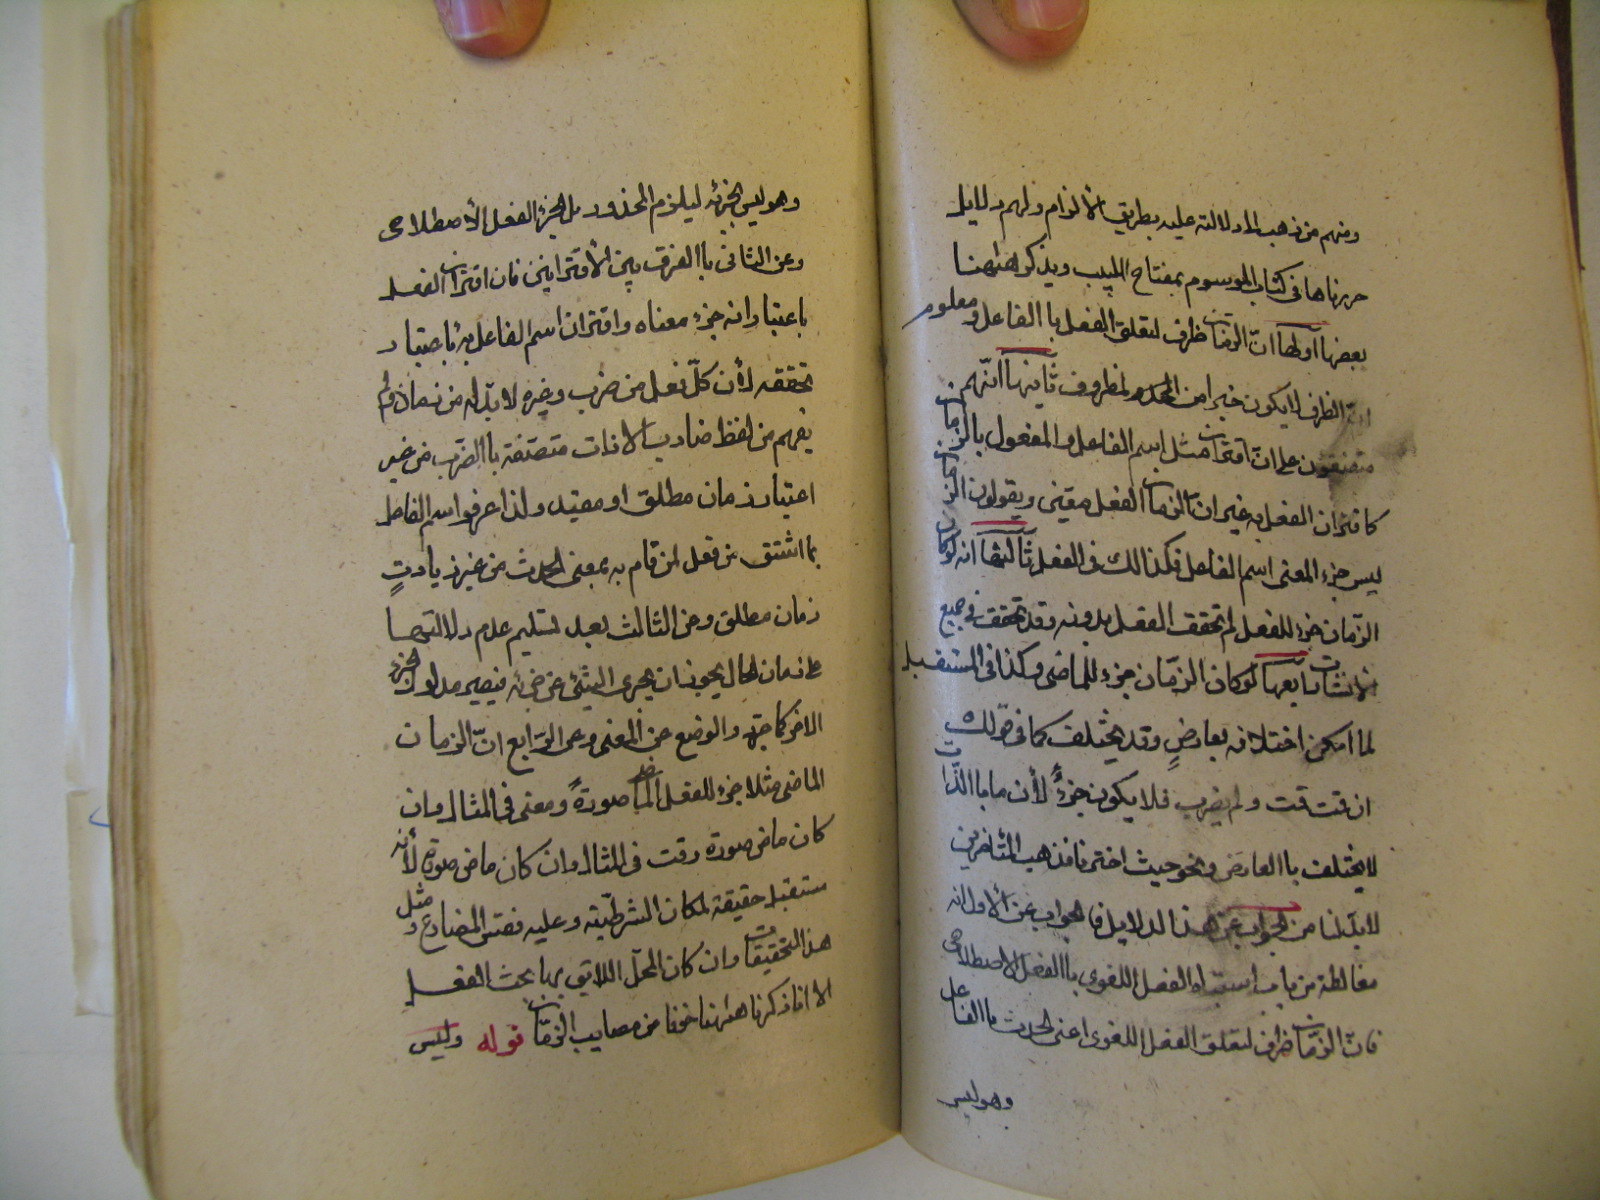 ومنهم من ذهب الى دلالته عليه بطريق الالزام ولهم دلايل
حررناها فى كتاب الموسوم بمفتاح اللبيب ويذكر ههنا
بعضها اولها انّ الزمان ظرف لتعلق الفعل باالفاعل ومعلوم
انّ الظرف لا يكون جزء من المظروف ثانيها انّهم
متفقون على انّ اقتران مثل اسم الفاعل والمفعول بالزمان
كاقتران الفعل به غير ان الزمان الفعل معيّن ويقولون الزمان
ليس جزء المعنى اسم الفاعل فكذالك فى الفعل ثالثها انه لوكان
الزّمان جزء للفعل لم تحقق الفعل بدونه وقد تحقق فى جميع
الانشات رابعها لوكان الزّمان جزء للماضى وكذا فى المستقبل
لما امكن اختلافه بعارضٍ وقد يختلف كما فى قولك
ان قمت قمت ولم يضرب فلا يكون جزءً لأن ما باالذّات
لا يختلف باالعارض ونحو حيث اخترنا مذهب المتأخرين
لابدّ لنا من الجواب عن هذا الدلايل فالجواب عن الأول انه
مغالطة من باب اشتباه الفعل اللغوى باالفعل الاصطلاحى
فانّ الزمّان ظرف لتعلق الفعل اللغوى اعنى الحدث باالفاعل
وهوليس
وهوليس بجزئه ليلزم المحذور بل بجزء الفعل الأصطلاحى
وعن الثانى باالفرق بين الأقترانين فان اقتران الفعل
باعتبار انه جزء معناه واقتران اسم الفاعل به باعتبار
تحققه لأن كلّ فعل من ضرب وغيره لابدّ له من زمان ولم
يفهم من لفظ ضارب الا ذات متصفة باالضرب من غير
اعتبار زمان مطلق او مقيد ولذا عرفوا اسم الفاعل
بما اشتق من فعل لمن قام به بمعنى الحدث من غير زيادتٍ
زمان مطلق وعن الثالث بعد تسليم عدم دلالتها
على زمان الحال يجوز ان يجرى الشئ عن جزئه فيصير مدلوله الجزء
الاخر كما جرّد والوضع عن المعنى وعن الرّابع انّ الزمان
الماضى مثلا جزء للفعل الماضى صورةً ومعنى فى المثال وان
كان ماض صورة وقت فى المثال وان كان ماض صورة لأنه
مستقبل حقيقة لمكان الشرطيّة وعليه فقس المضارع ومثل
هذا التحقيقات وان كان المحلّ اللايق بها بحث الفعل
الا انا ذكرنا ههنا خوفا من مصايب الزمّان قوله وليس